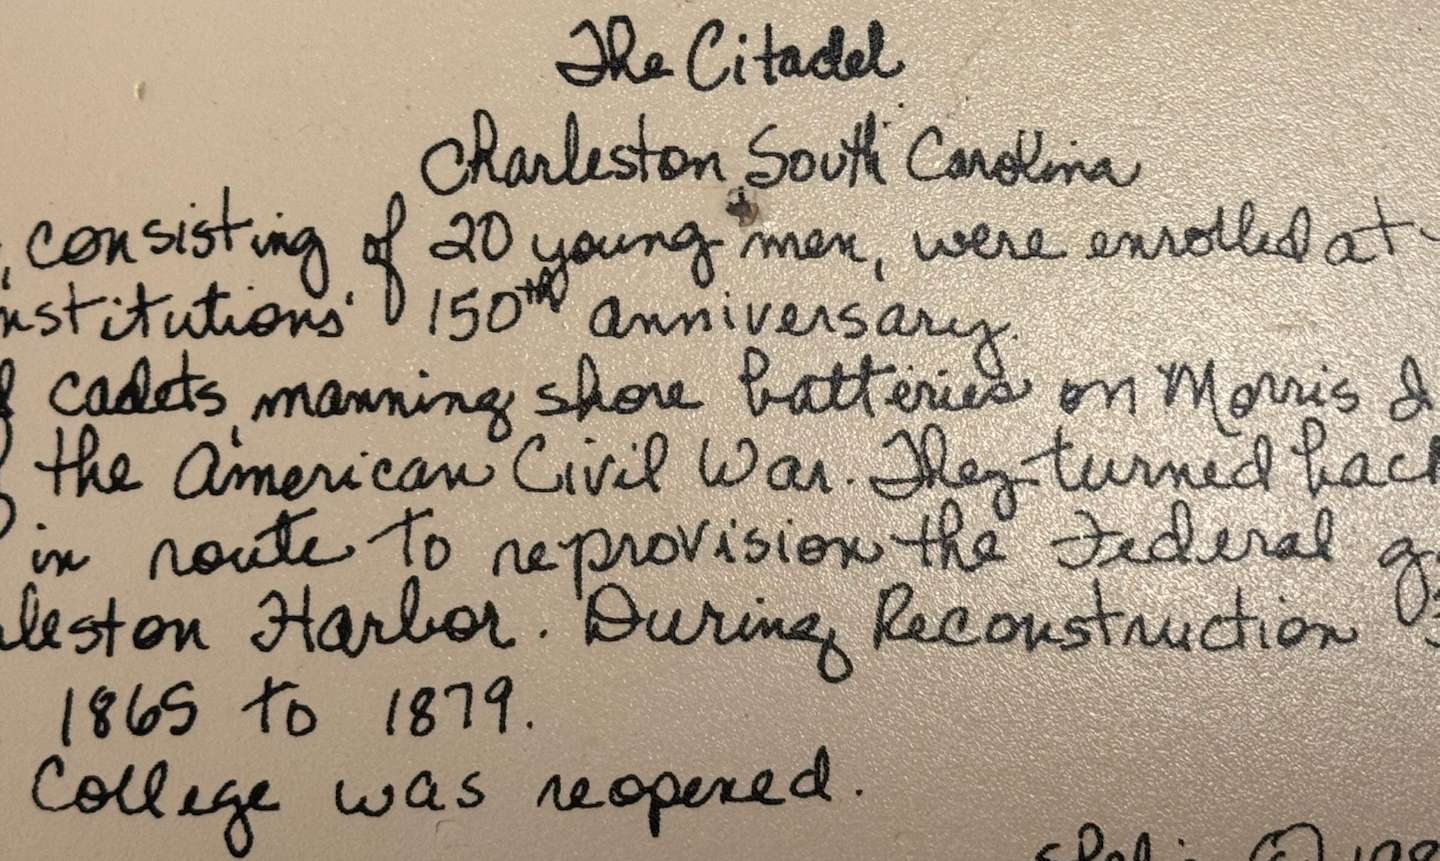 The Citadel
Charleston South Carolina
, consisting of 20 young men, were enrolled at
nstitutions' 150th anniversary.
cadets, manning shore batteries on Morris I
the American Civil War. They turned back
in route to reprovision the Federal g
leston Harbor. During Reconstruction
1865 to 1879.
College was reopened.